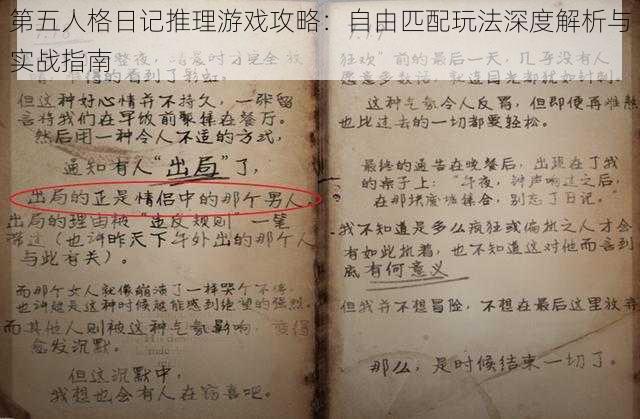 第五人格日记推理游戏攻略：自由匹配玩法深度解析与
实战指南
但这种好心情并不持久，一张留
言将我们在早饭前聚集在餐厅。
然后用一种令人不适的方式，
通知有人“出局”了，
出局的正是情侣中的那个男人，
出局的理由被“违反规则”一笔
带过（也许昨天下午外出的那个人
与此有关）。
而那个女人就像崩溃了一样哭个不停，
也许就是这种时候越能感到绝望的强烈。
而其他人则被这种气氛影响，变得
愈发沉默。
但这沉默中，
我想也会有人在窃喜吧。
狂欢”前的最后一天，几乎没有人
愿意多数话，就连目光都犹如针刺。
这种气氛令人反胃，但即便再难熬
也比过去的一切都要轻松。
最终的通告在晚餐后，出现在了我
的桌子上：“午夜，钟声响过之后，
在那块废墟集合，别忘了日记。”
我不知道是多么疯狂或偏执之人才会
有如此执着，也不知道这对他而言到
底有何意义
但我并不想冒险，不想在最后这里放弃
那么，是时候结束一切了。